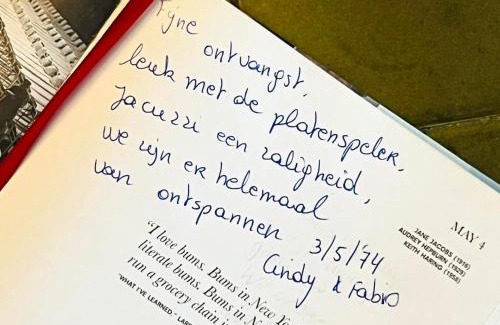 Fijne
ontvangst,
leuk met de platenspeler,
Jacuzzi een zaligheid,
we zijn er helemaal
van ontspannen
3/5/'74
Cindy & Fabio
MAY 4
JANE JACOBS (1916)
AUDREY HEPBURN (1929)
KEITH HARING (1958)
"I love bums. Bums in New Yo
literate bums. Bums in N
run a grocery chain i
"WHAT I'VE LEARNED," LAR